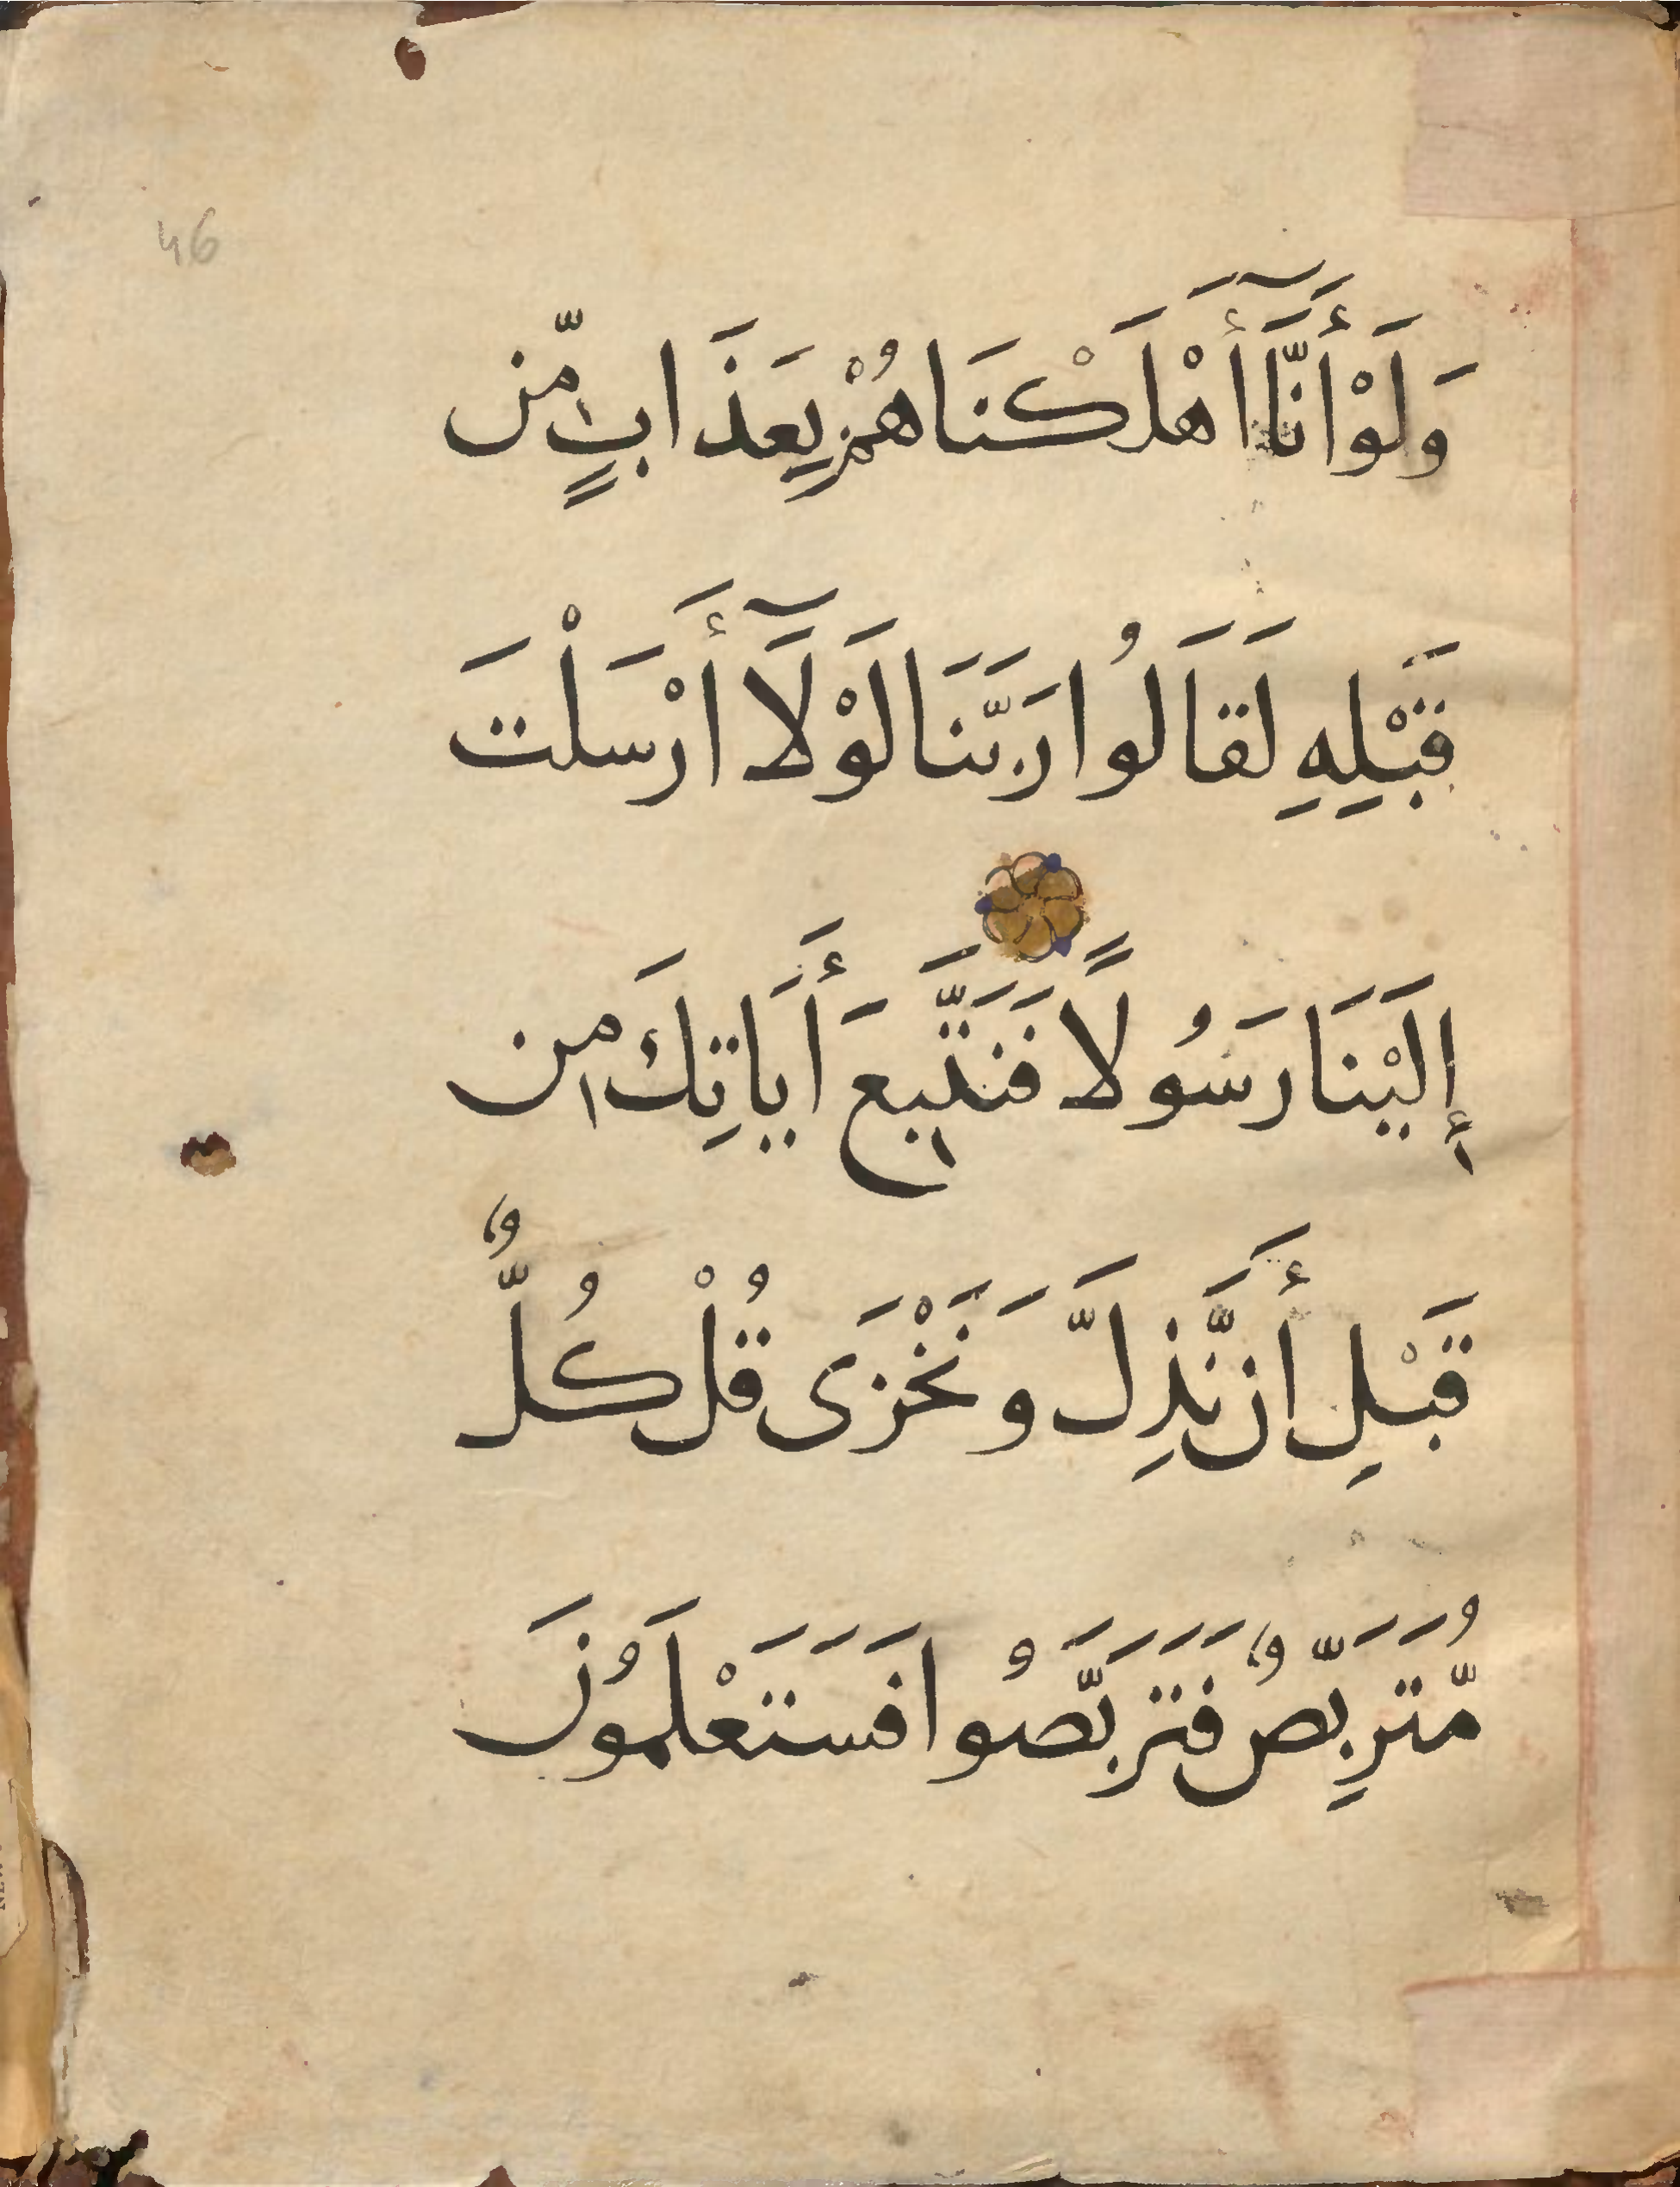 46
وَلَوْ أَنَّآ أَهْلَكْنَاهُمْ بِعَذَابٍ مِّن
قَبْلِهِ لَقَالُوا رَبَّنَا لَوْلَآ أَرْسَلْتَ
إِلَيْنَا رَسُولًا فَنَتَّبِعَ أَيَاتِكَ مِن
قَبْلِ أَن نَّذِلَّ وَنَخْزَى قُلْ كُلٌّ
مُّتَرَبِّصٌ فَتَرَبَّصُوا فَسَتَعْلَمُونَ